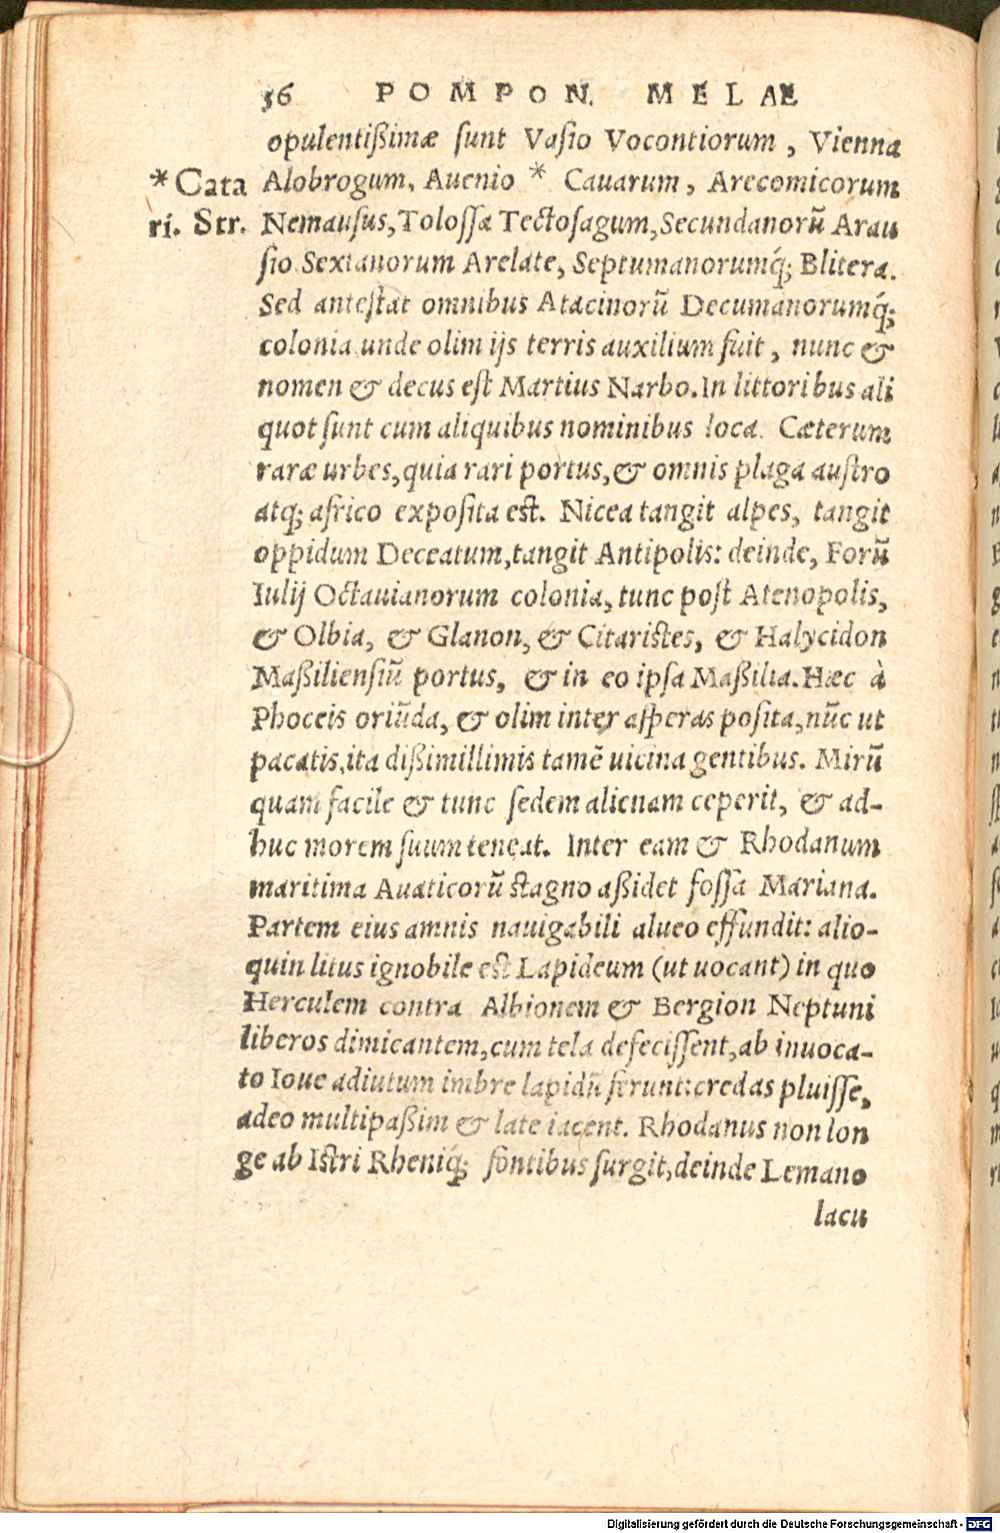 36 POMPON. MELAE
opulentißimæ sunt Vasio Vocontiorum, Vienna
*Cata
Alobrogum, Auenio * Cauarum, Arecomicorum
ri. Str.
Nemausus, Tolossa Tectosagum, Secundanorũ Arau
sio Sextanorum Arelate, Septumanorumq́; Blitera.
Sed antestat omnibus Atacinorũ Decumanorumq́;
colonia unde olim ijs terris auxilium fuit, nunc &
nomen & decus est Martius Narbo. In littoribus ali
quot sunt cum aliquibus nominibus loca. Cæterum
raræ urbes, quia rari portus, & omnis plaga austro
atq; africo exposita est. Nicea tangit alpes, tangit
oppidum Deceatum, tangit Antipolis: deinde, Forũ
Iulij Octauianorum colonia, tunc post Atenopolis,
& Olbia, & Glanon, & Citaristes, & Halycidon
Maßiliensiũ portus, & in eo ipsa Maßilia. Hæc à
Phoceis oriũda, & olim inter asperas posita, nũc ut
pacatis, ita dißimillimis tamẽ uicina gentibus. Mirũ
quam facile & tunc sedem alienam ceperit, & ad-
huc morem suum teneat. Inter eam & Rhodanum
maritima Auaticorũ stagno aßidet fossa Mariana.
Partem eius amnis nauigabili alueo effundit: alio-
quin litus ignobile est Lapideum (ut uocant) in quo
Herculem contra Albionem & Bergion Neptuni
liberos dimicantem, cum tela defecissent, ab inuoca-
to Ioue adiutum imbre lapidũ ferunt: credas pluisse,
adeo multi paßim & late iacent. Rhodanus non lon
ge ab Istri Rheniq́; fontibus surgit, deinde Lemano
lacu
Digitalisierung gefördert durch die Deutsche Forschungsgemeinschaft - DFG